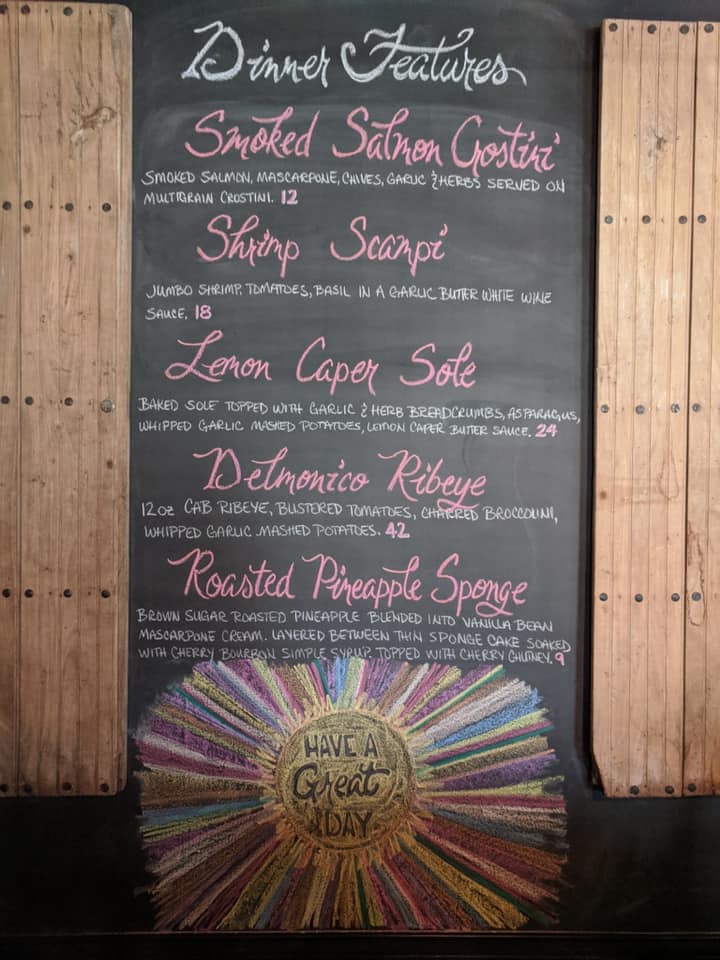 Dinner Features
Smoked Salmon Crostini
SMOKED SALMON, MASCARPONE, CHIVES, GARLIC & HERBS SERVED ON
MULTIGRAIN CROSTINI. 12
Shrimp Scampi
JUMBO SHRIMP, TOMATOES, BASIL IN A GARLIC BUTTER WHITE WINE
SAUCE. 18
Lemon Caper Sole
BAKED SOLE TOPPED WITH GARLIC & HERB BREADCRUMBS, ASPARAGUS,
WHIPPED GARLIC MASHED POTATOES, LEMON CAPER BUTTER SAUCE. 24
Delmonico Ribeye
12oz CAB RIBEYE, BLISTERED TOMATOES, CHARRED BROCCOLINI,
WHIPPED GARLIC MASHED POTATOES. 42
Roasted Pineapple Sponge
BROWN SUGAR ROASTED PINEAPPLE BLENDED INTO VANILLA BEAN
MASCARPONE CREAM. LAYERED BETWEEN THIN SPONGE CAKE SOAKED
WITH CHERRY BOURBON SIMPLE SYRUP, TOPPED WITH CHERRY CHUTNEY. 9
HAVE A
Great
DAY